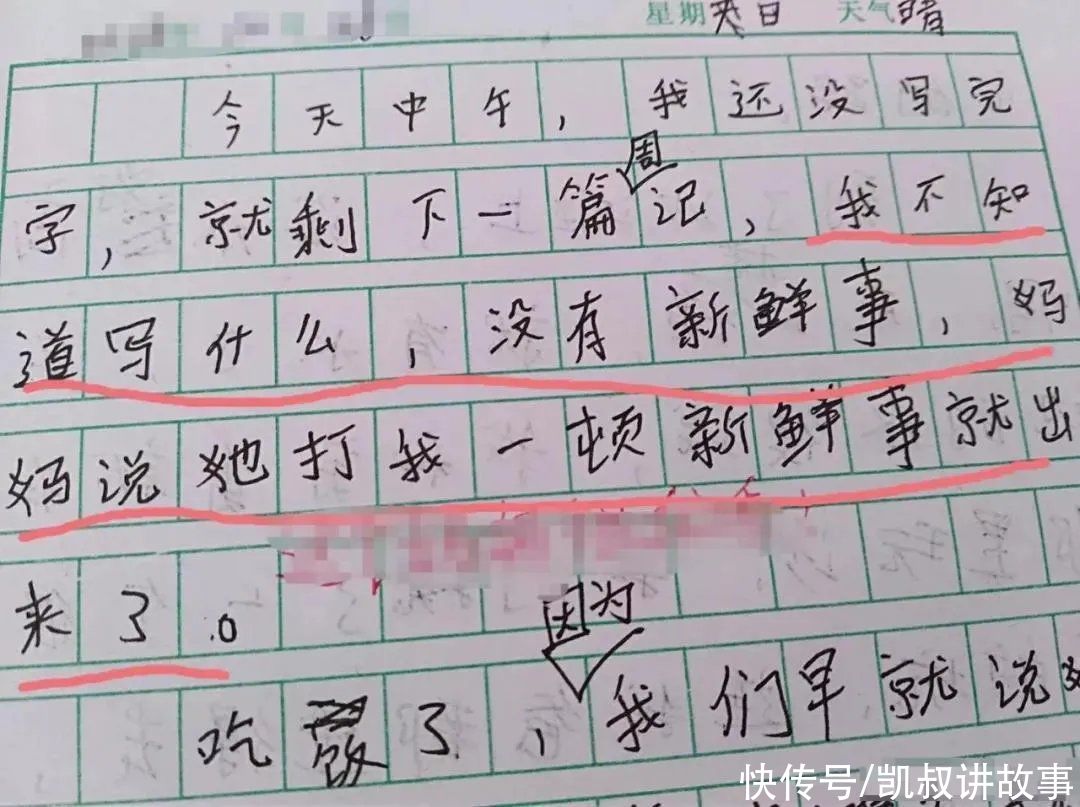 星期天日 天气晴
今天中午，我还没写完
字，就剩下一篇周记，我不知
道写什么，没有新鲜事，妈
妈说她打我一顿新鲜事就出
来了。
吃饭了，因为我们早就说好
快传号/凯叔讲故事